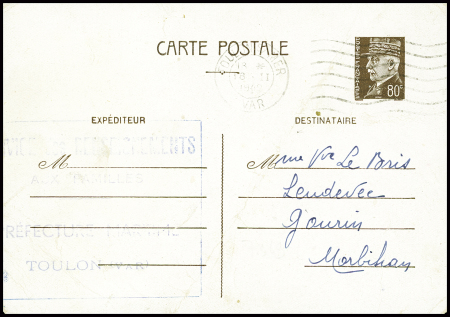 CARTE POSTALE
VAR
80c
EXPÉDITEUR
DESTINATAIRE
RENSEIGNEMENTS
AUX FAMILLES
PRÉFECTURE MARITIME
TOULON (VAR)
M
Mme Vve Le Bris
Lendevec
Gourin
Morbihan